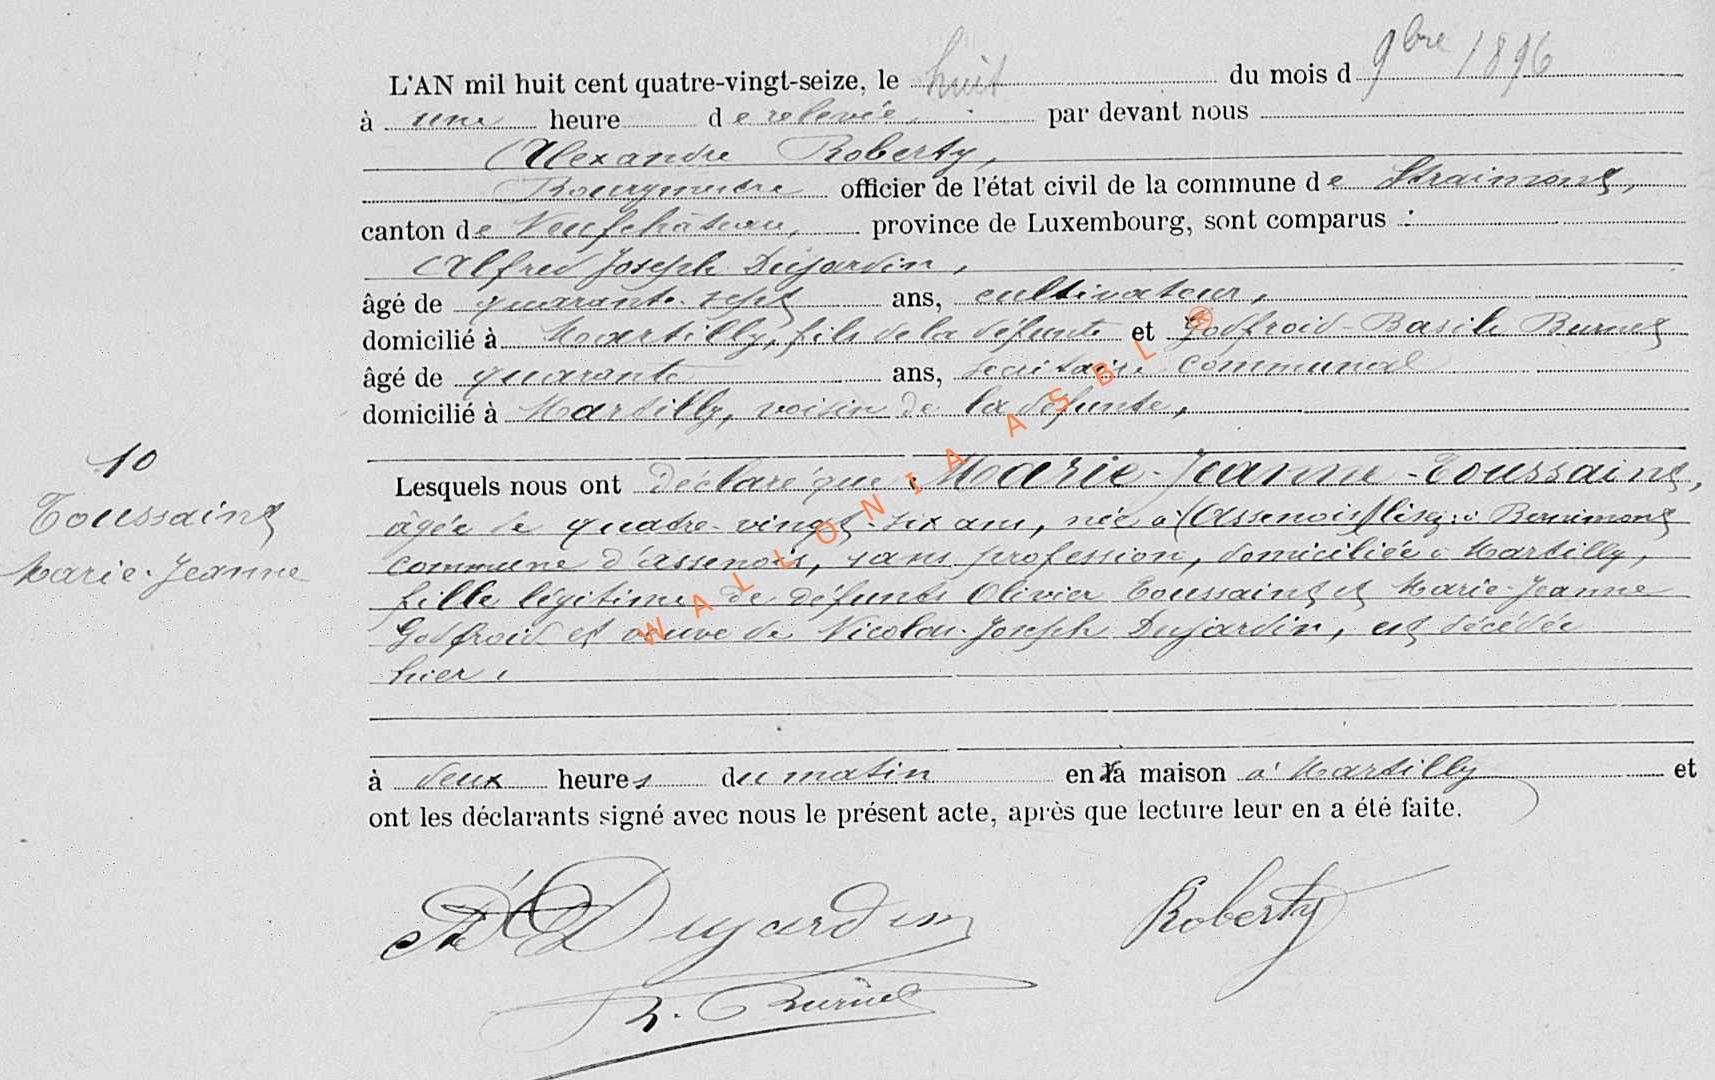 L'AN mil huit cent quatre-vingt-seize, le huit du mois d 9bre 1896
à une heure de relevée, par devant nous
Alexandre Roberty,
Bourgmestre officier de l'état civil de la commune de Straimont,
canton de Neufchâteau, province de Luxembourg, sont comparus :
Alfred Joseph Dujardin,
âgé de quarante-sept ans, cultivateur,
domicilié à Martilly, fils de la défunte et Godfroid-Basile Burnet
âgé de quarante ans, secrétaire communal
domicilié à Martilly, voisin de la défunte,
10
Toussaint
Marie-Jeanne
Lesquels nous ont déclaré que Marie-Jeanne-Toussaint,
âgée de quatre-vingt-six ans, née à (Assenois) lisez: à Bernimont
commune d'assenois, sans profession, domiciliée à Martilly,
fille légitime de défunts Olivier Toussaint et Marie-Jeanne
Godfroid et veuve de Nicolas-Joseph Dujardin, est décédée
hier,
à deux heures du matin en sa maison à Martilly et
ont les déclarants signé avec nous le présent acte, après que lecture leur en a été faite.
Dujardin Roberty
Burnet
WALLONIA ASBL ®